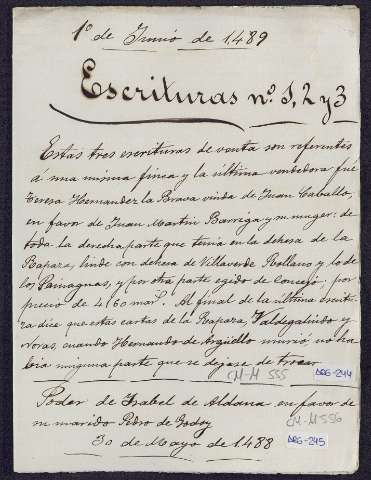 1º de Junio de 1489
Escrituras nº 1, 2 y 3
Estas tres escrituras de venta son referentes
á una misma finca y la última vendedora fué
Teresa Hernandez la Brava viuda de Juan Caballo,
en favor de Juan Martin Barriga y su muger: de
toda la derecha parte que tenia en la dehesa de la
Rapaza, linde con dehesa de Villaverde Rollano y lo de
los Paniaguas, y por otra parte egido de Concejo: por
precio de 4160 mars. Al final de la última escritu-
ra dice que estas cartas de la Rapaza, Valdegalindo y
Noras, cuando Hernando de Argüello murió, no ha-
bia ninguna parte que se dejase de trocar
CM-M 555
ARG-244
Poder de Isabel de Aldana en favor de
su marido Pedro de Godoy
CM-M 556
30 de Mayo de 1488
ARG-245